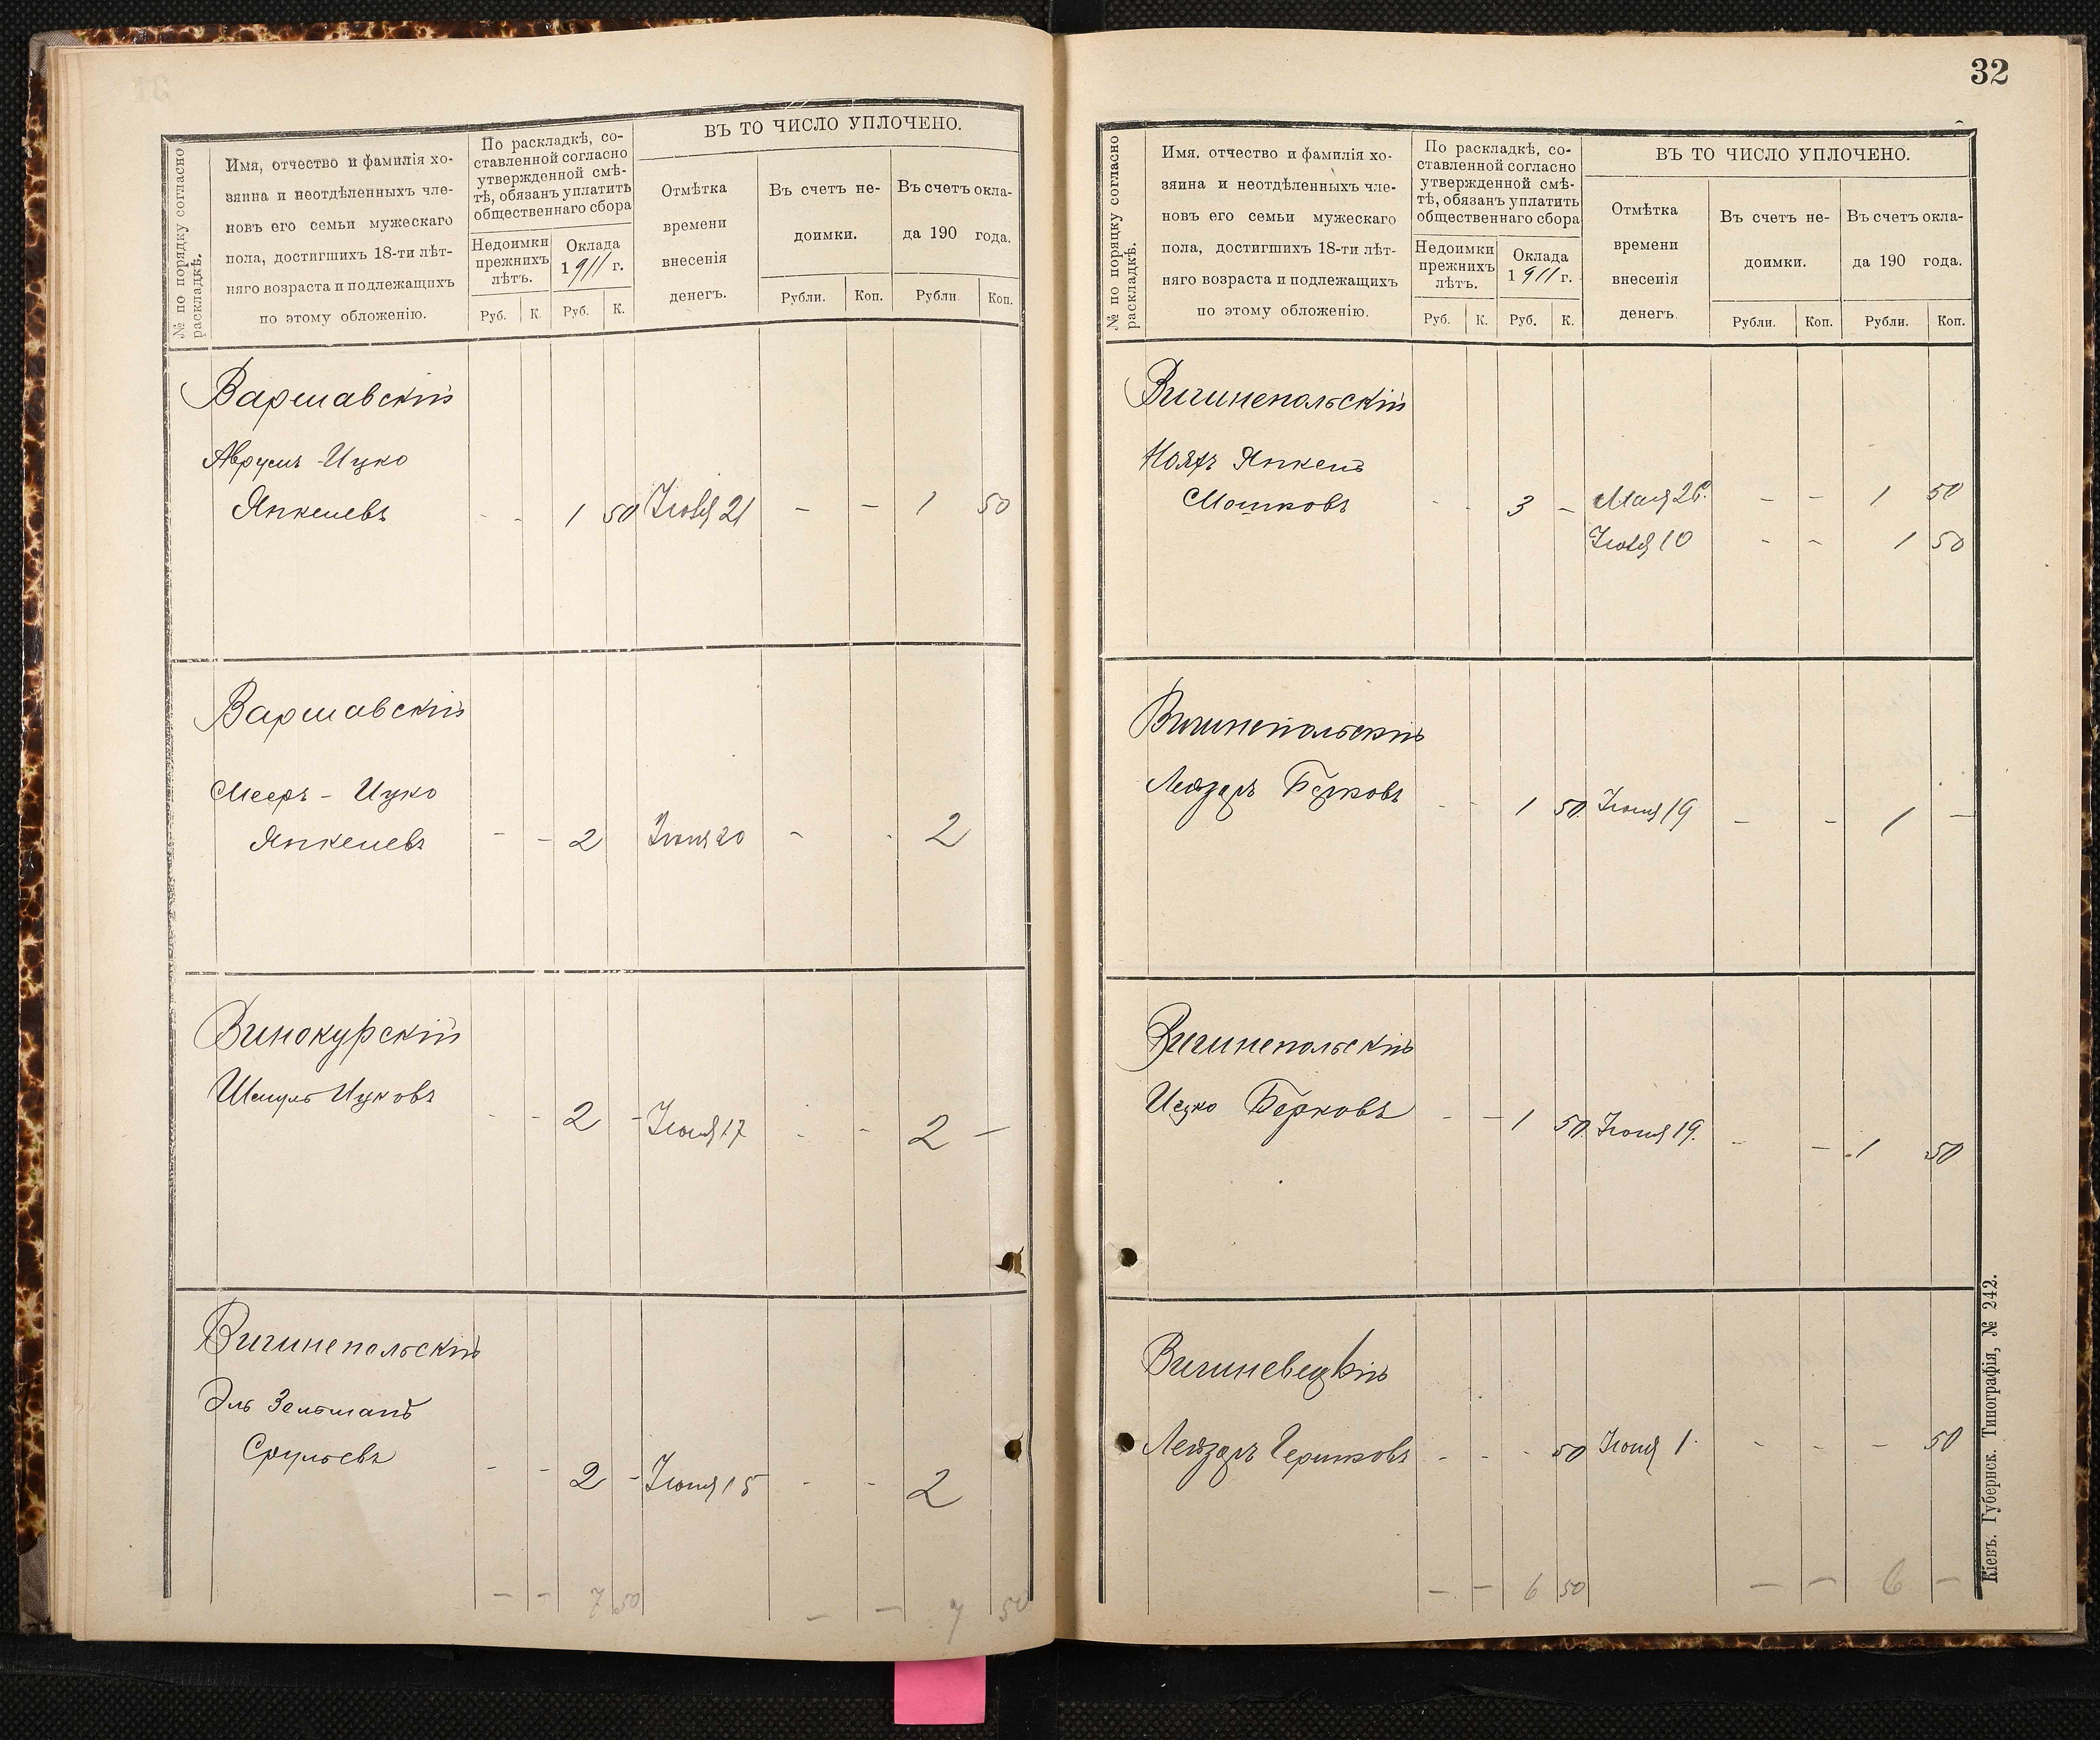 № по порядку согласно раскладкѣ.
Имя, отчество и фамилія хо-
зяина и неотдѣленныхъ чле-
новъ его семьи мужескаго
пола, достигшихъ 18-ти лѣт-
няго возраста и подлежащихъ
по этому обложенію.
По раскладкѣ, со-
ставленной согласно
утвержденной смѣ-
тѣ, обязанъ уплатить
общественнаго сбора
Недоимки
прежнихъ
лѣтъ.
Оклада
1911 г.
Руб. К. Руб. К.
ВЪ ТО ЧИСЛО УПЛОЧЕНО.
Отмѣтка
времени
внесенія
денегъ.
Въ счетъ не-
доимки.
Въ счетъ окла-
да 190 года.
Рубли. Коп. Рубли Коп.
Варшавскій
Аврумъ-Ицко
Янкелевъ - - 1 50 Іюля 21 - - 1 50
Варшавскій
Мееръ - Ицко
Янкелевъ - - 2 Іюня 20 - - 2
Винокурскій
Шмуль Ицковъ - - 2 - Іюня 17 - - 2 -
Вигинепольскій
Эль Зельманъ
Срульевъ - - 2 - Іюня 15 - - 2
- - 7 50 - - 7 50
32
№ по порядку согласно раскладкѣ.
Имя. отчество и фамилія хо-
зяина и неотдѣленныхъ чле-
новъ его семьи мужескаго
пола, достигшихъ 18-ти лѣт-
няго возраста и подлежащихъ
по этому обложенію.
По раскладкѣ, со-
ставленной согласно
утвержденной смѣ-
тѣ, обязанъ уплатить
общественнаго сбора
Недоимки
прежнихъ
лѣтъ.
Оклада
1911 г.
Руб. К. Руб. К.
ВЪ ТО ЧИСЛО УПЛОЧЕНО.
Отмѣтка
времени
внесенія
денегъ.
Въ счетъ не-
доимки.
Въ счетъ окла-
да 190 года.
Рубли. Коп. Рубли. Коп.
Вигинепольскій
Янкель
Мошковъ - - 3 - Мая 26. - - 1 50
Іюля 10 - - 1 50
Вигинепольскій
Лейзеръ Берковъ - - 1 50 Іюня 19 - - 1 -
Вигинепольскій
Ицко Берковъ - - 1 50 Іюня 19. - - 1 50
Вигиневецкій
Лейзеръ Гершковъ - - - 50 Іюня 1. - - - 50
- - 6 50 - - 6 -
Кіевъ. Губернск. Типографія, № 242.